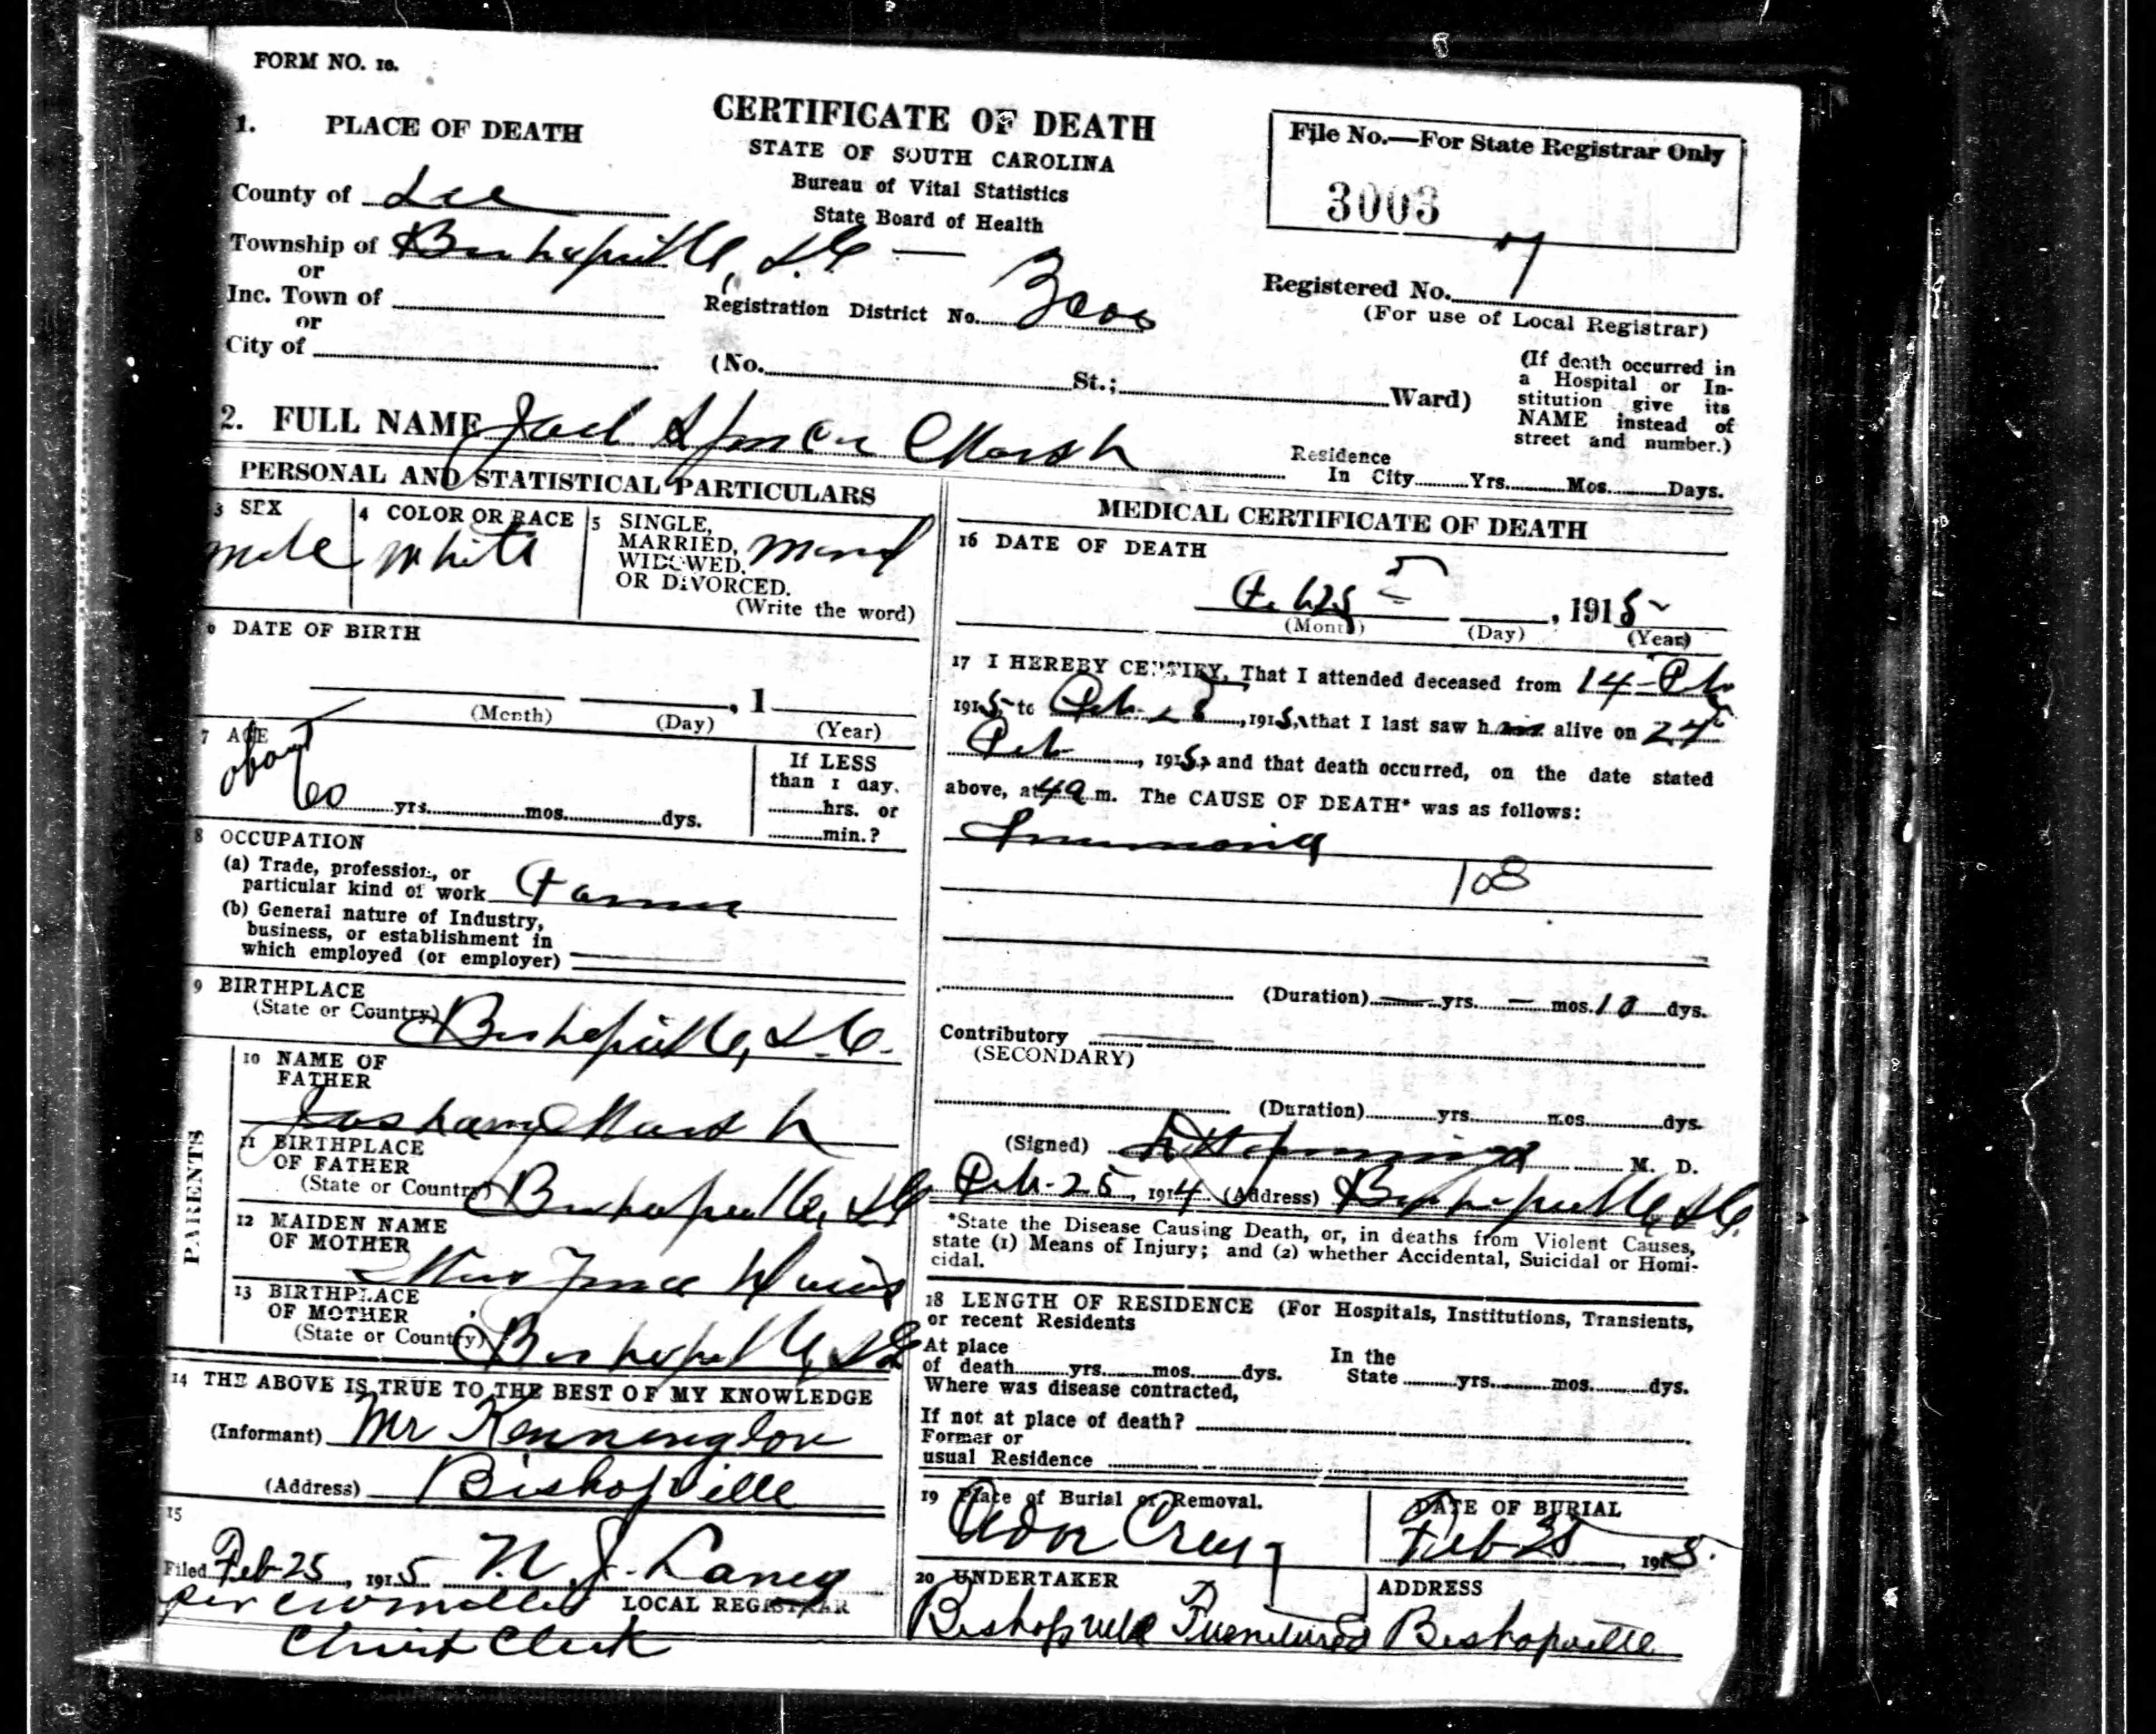 FORM NO. 10.
CERTIFICATE OF DEATH
STATE OF SOUTH CAROLINA
Bureau of Vital Statistics
State Board of Health
File No.—For State Registrar Only
3003
1. PLACE OF DEATH
County of Lee
Township of Bishopville, S.C.
or
Inc. Town of
or
City of
Registration District No.
Registered No. 7
(For use of Local Registrar)
(No. St.; Ward)
(If death occurred in
a Hospital or In-
stitution give its
NAME instead of
street and number.)
2. FULL NAME Marsh
Residence
In City Yrs. Mos. Days.
PERSONAL AND STATISTICAL PARTICULARS
3 SEX
male
4 COLOR OR RACE
White
5 SINGLE,
MARRIED,
WIDOWED,
OR DIVORCED.
(Write the word)
6 DATE OF BIRTH
, 1
(Month) (Day) (Year)
7 AGE
about
60 yrs. mos. dys.
If LESS
than 1 day,
hrs. or
min.?
8 OCCUPATION
(a) Trade, profession, or
particular kind of work Farmer
(b) General nature of Industry,
business, or establishment in
which employed (or employer)
9 BIRTHPLACE
(State or Country) Bishopville, S.C.
PARENTS
10 NAME OF
FATHER
Marsh
11 BIRTHPLACE
OF FATHER
(State or Country) Bishopville, SC
12 MAIDEN NAME
OF MOTHER
13 BIRTHPLACE
OF MOTHER
(State or Country) Bishopville, SC
14 THE ABOVE IS TRUE TO THE BEST OF MY KNOWLEDGE
(Informant) Mr Kennington
(Address) Bishopville
15
Filed Feb-25, 1915 N. J. Laney
LOCAL REGISTRAR
Clerk
MEDICAL CERTIFICATE OF DEATH
16 DATE OF DEATH
Feb 25, 1915
(Month) (Day) (Year)
17 I HEREBY CERTIFY, That I attended deceased from 14-Feb
1915 to Feb, 1915, that I last saw him alive on 24
Feb, 1915, and that death occurred, on the date stated
above, at 4 a m. The CAUSE OF DEATH* was as follows:
Pneumonia
108
(Duration) — yrs. — mos. 10 dys.
Contributory
(SECONDARY)
(Duration) yrs. mos. dys.
(Signed) M. D.
Feb-25, 1914 (Address) Bishopville, SC.
*State the Disease Causing Death, or, in deaths from Violent Causes,
state (1) Means of Injury; and (2) whether Accidental, Suicidal or Homi-
cidal.
18 LENGTH OF RESIDENCE (For Hospitals, Institutions, Transients,
or recent Residents
At place
of death yrs. mos. dys.
In the
State yrs. mos. dys.
Where was disease contracted,
If not at place of death?
Former or
usual Residence
19 Place of Burial or Removal.
DATE OF BURIAL
Feb 25, 1915.
20 UNDERTAKER
Bishopville
ADDRESS
Bishopville